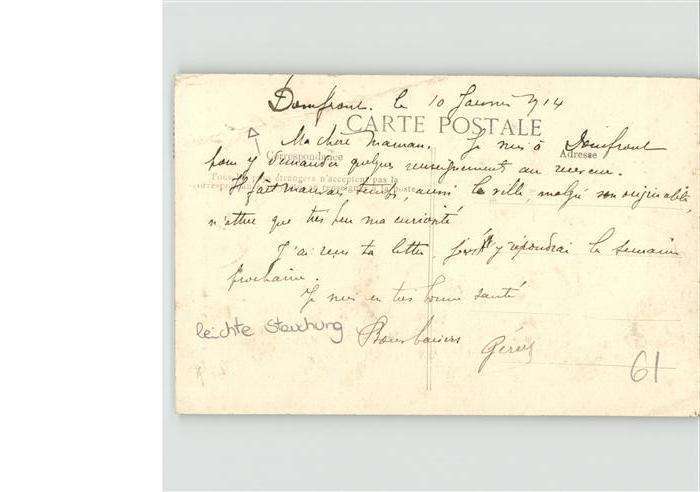 Domfront. le 10 Janvier 1914
CARTE POSTALE
Ma chère maman. Je suis à Domfront
Correspondance
Adresse
pour y demander quelques renseignements au receveur.
Tous les étrangers n'acceptent pas la
à la poste
Il fait mauvais temps, aussi la ville, malgré son originalité,
n'attire que très peu ma curiosité
J'ai reçu ta lettre, j'y répondrai la semaine
prochaine.
Je suis en très bonne santé
leichte Stauchung
Bons baisers
61